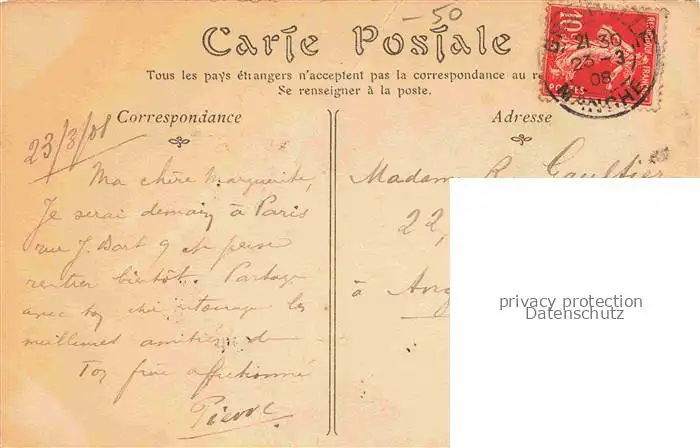 -50
Carte Postale
Tous les pays étrangers n'acceptent pas la correspondance au re
Se renseigner à la poste.
10
REPUBLIQUE FRANÇAISE
POSTES
21 30
23 - 3
08
MANCHE
Correspondance
Adresse
23/3/08
Ma chère Marguerite,
Je serai demain à Paris
rue J. Bart 9 et pense
rentrer bientôt. Partage
avec ton cher entourage les
meilleures amitiés de
Ton frère affectionné
Pierre
Madame R. Gaultier
22,
à Ang
privacy protection
Datenschutz